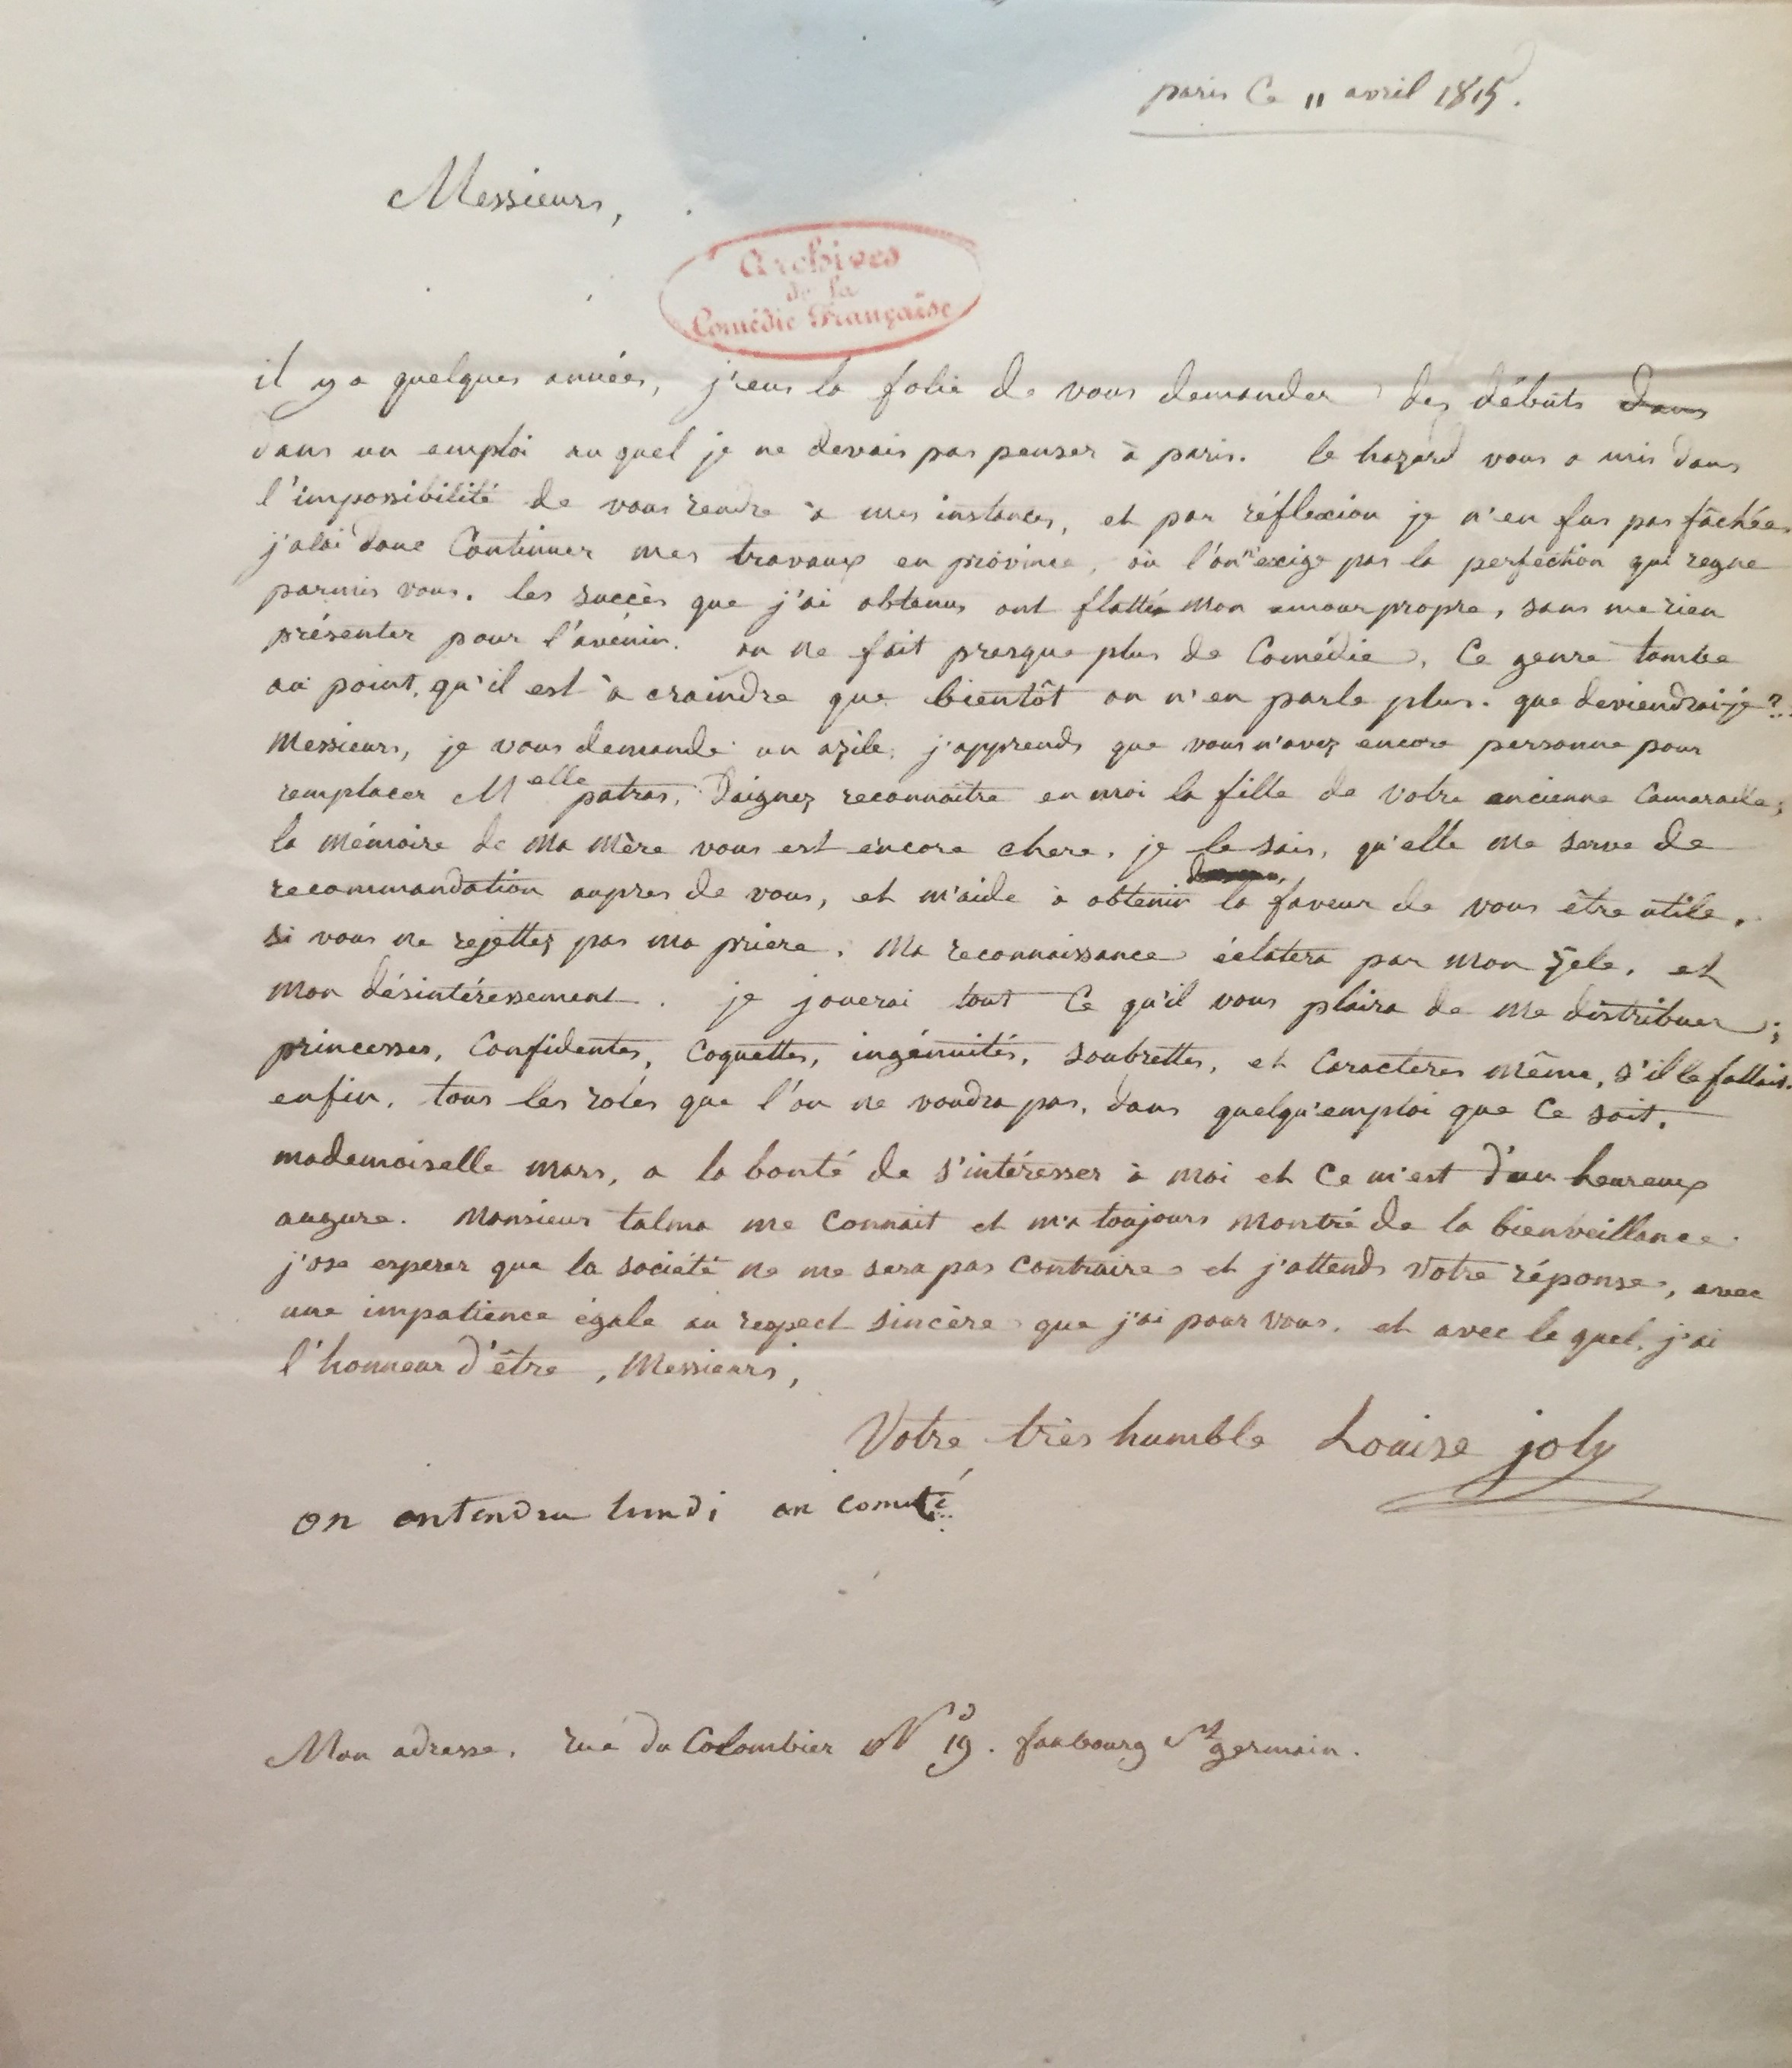 paris Ce 11 avril 1815.
Messieurs,
Archives
de la
Comédie Française
il y a quelques années, j'eus la folie de vous demander des débuts dans
dans un emploi auquel je ne devais pas penser à paris. le hazard vous a mis dans
l'impossibilité de vous rendre à mes instances, et par réflexion je n'en fus pas fâchée.
j'alai donc Continuer mes travaux en province, où l'on n'exige pas la perfection qui regne
parmis vous. les succès que j'ai obtenus ont flatté mon amour propre, sans me rien
présenter pour l'avénir. on ne fait presque plus de Comédie, Ce genre tombe
au point, qu'il est à craindre que bientôt on n'en parle plus. que deviendrai-je?
Messieurs, je vous demande un azile. j'apprends que vous n'avez encore personne pour
remplacer Melle patras. Daignez reconnaitre en moi la fille de votre ancienne Camarade;
la mémoire de ma mère vous est encore chere. je le sais, qu'elle me serve de
recommandation aupres de vous, et m'aide à obtenir la faveur de vous être utile.
si vous ne rejettez pas ma priere. Ma reconnaissance éclatera par mon zele. et
mon désintéressement. je jouerai tout Ce qu'il vous plaira de me distribuer;
princesses, Confidentes, Coquettes, ingénuités, soubrettes, et Caracteres même, s'il le fallait.
enfin, tous les roles que l'on ne voudra pas, dans quelqu'emploi que Ce soit.
mademoiselle mars, a la bonté de s'intéresser à moi et Ce m'est d'un heureux
augure. Monsieur talma me Connait et m'a toujours montré de la bienveillance.
j'ose esperer que la société ne me sera pas Contraire et j'attends votre réponse, avec
une impatience égale au respect sincère que j'ai pour vous. et avec le quel, j'ai
l'honneur d'être, Messieurs,
Votre très humble Louise joly
on entendra lundi au comité
Mon adresse. rue du Colombier No 19. faubourg St germain.